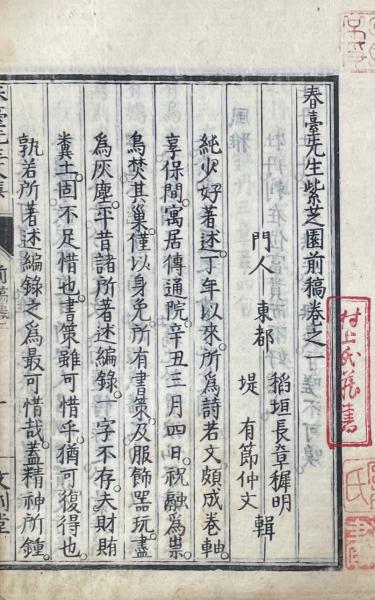 春臺先生紫芝園前稿卷之一
門人 東都 稻垣長章稺明
堤有節仲文 輯
純少好著述。丁年以來。所爲詩若文。頗成卷軸。
享保間。寓居傳通院。辛丑三月四日。祝融爲祟。
鳥焚其巢。僅以身免。所有書策。及服飾器玩。盡
爲灰塵。平昔諸所著述編錄。一字不存。夫財賄
糞土。固不足惜也。書策雖可惜乎。猶可復得也。
孰若所著述編錄之爲最可惜哉。蓋精神所鍾。
村上氏藏書